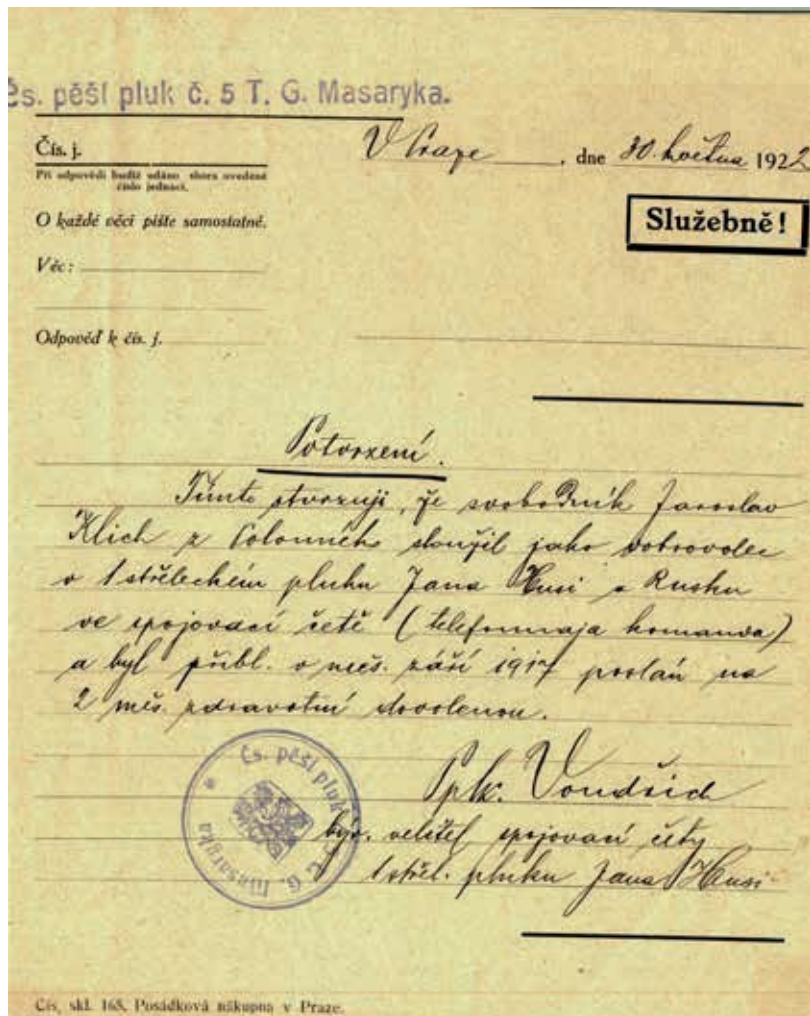 čs. pěší pluk č. 5 T. G. Masaryka.
Čís. j.
V Praze, dne 30. května 1922
Při odpovědi budiž udáno shora uvedené
číslo jednací.
O každé věci pište samostatně.
Služebně!
Věc:
Odpověď k čís. j.
Potvrzení.
Tímto stvrzuji, že svobodník Jaroslav
Klich z sloužil jako dobrovolec
v 1 střeleckém pluku Jana Husi v Rusku
ve spojovací četě (telefonnaja komanda)
a byl přibl. v měs. září 1917 poslán na
2 měs. zdravotní dovolenou.
Čs. pěší pluk 5 T. G. Masaryka
Pplk. Vondřich
býv. velitel spojovací čety
1 střel. pluku Jana Husi
Čís. skl. 168. Posádková nákupna v Praze.